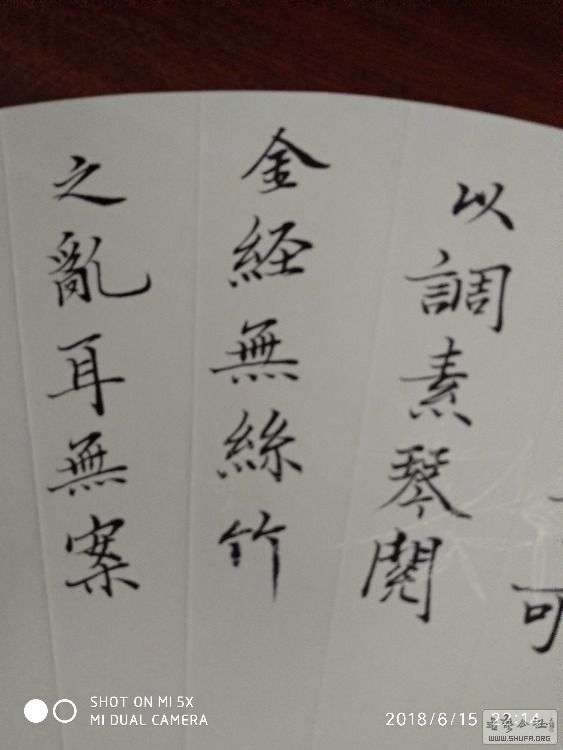 可
以調素琴閱
金経無絲竹
之亂耳無案
SHOT ON MI 5X
MI DUAL CAMERA
2018/6/15 22:14
WWW.SHUFA.ORG